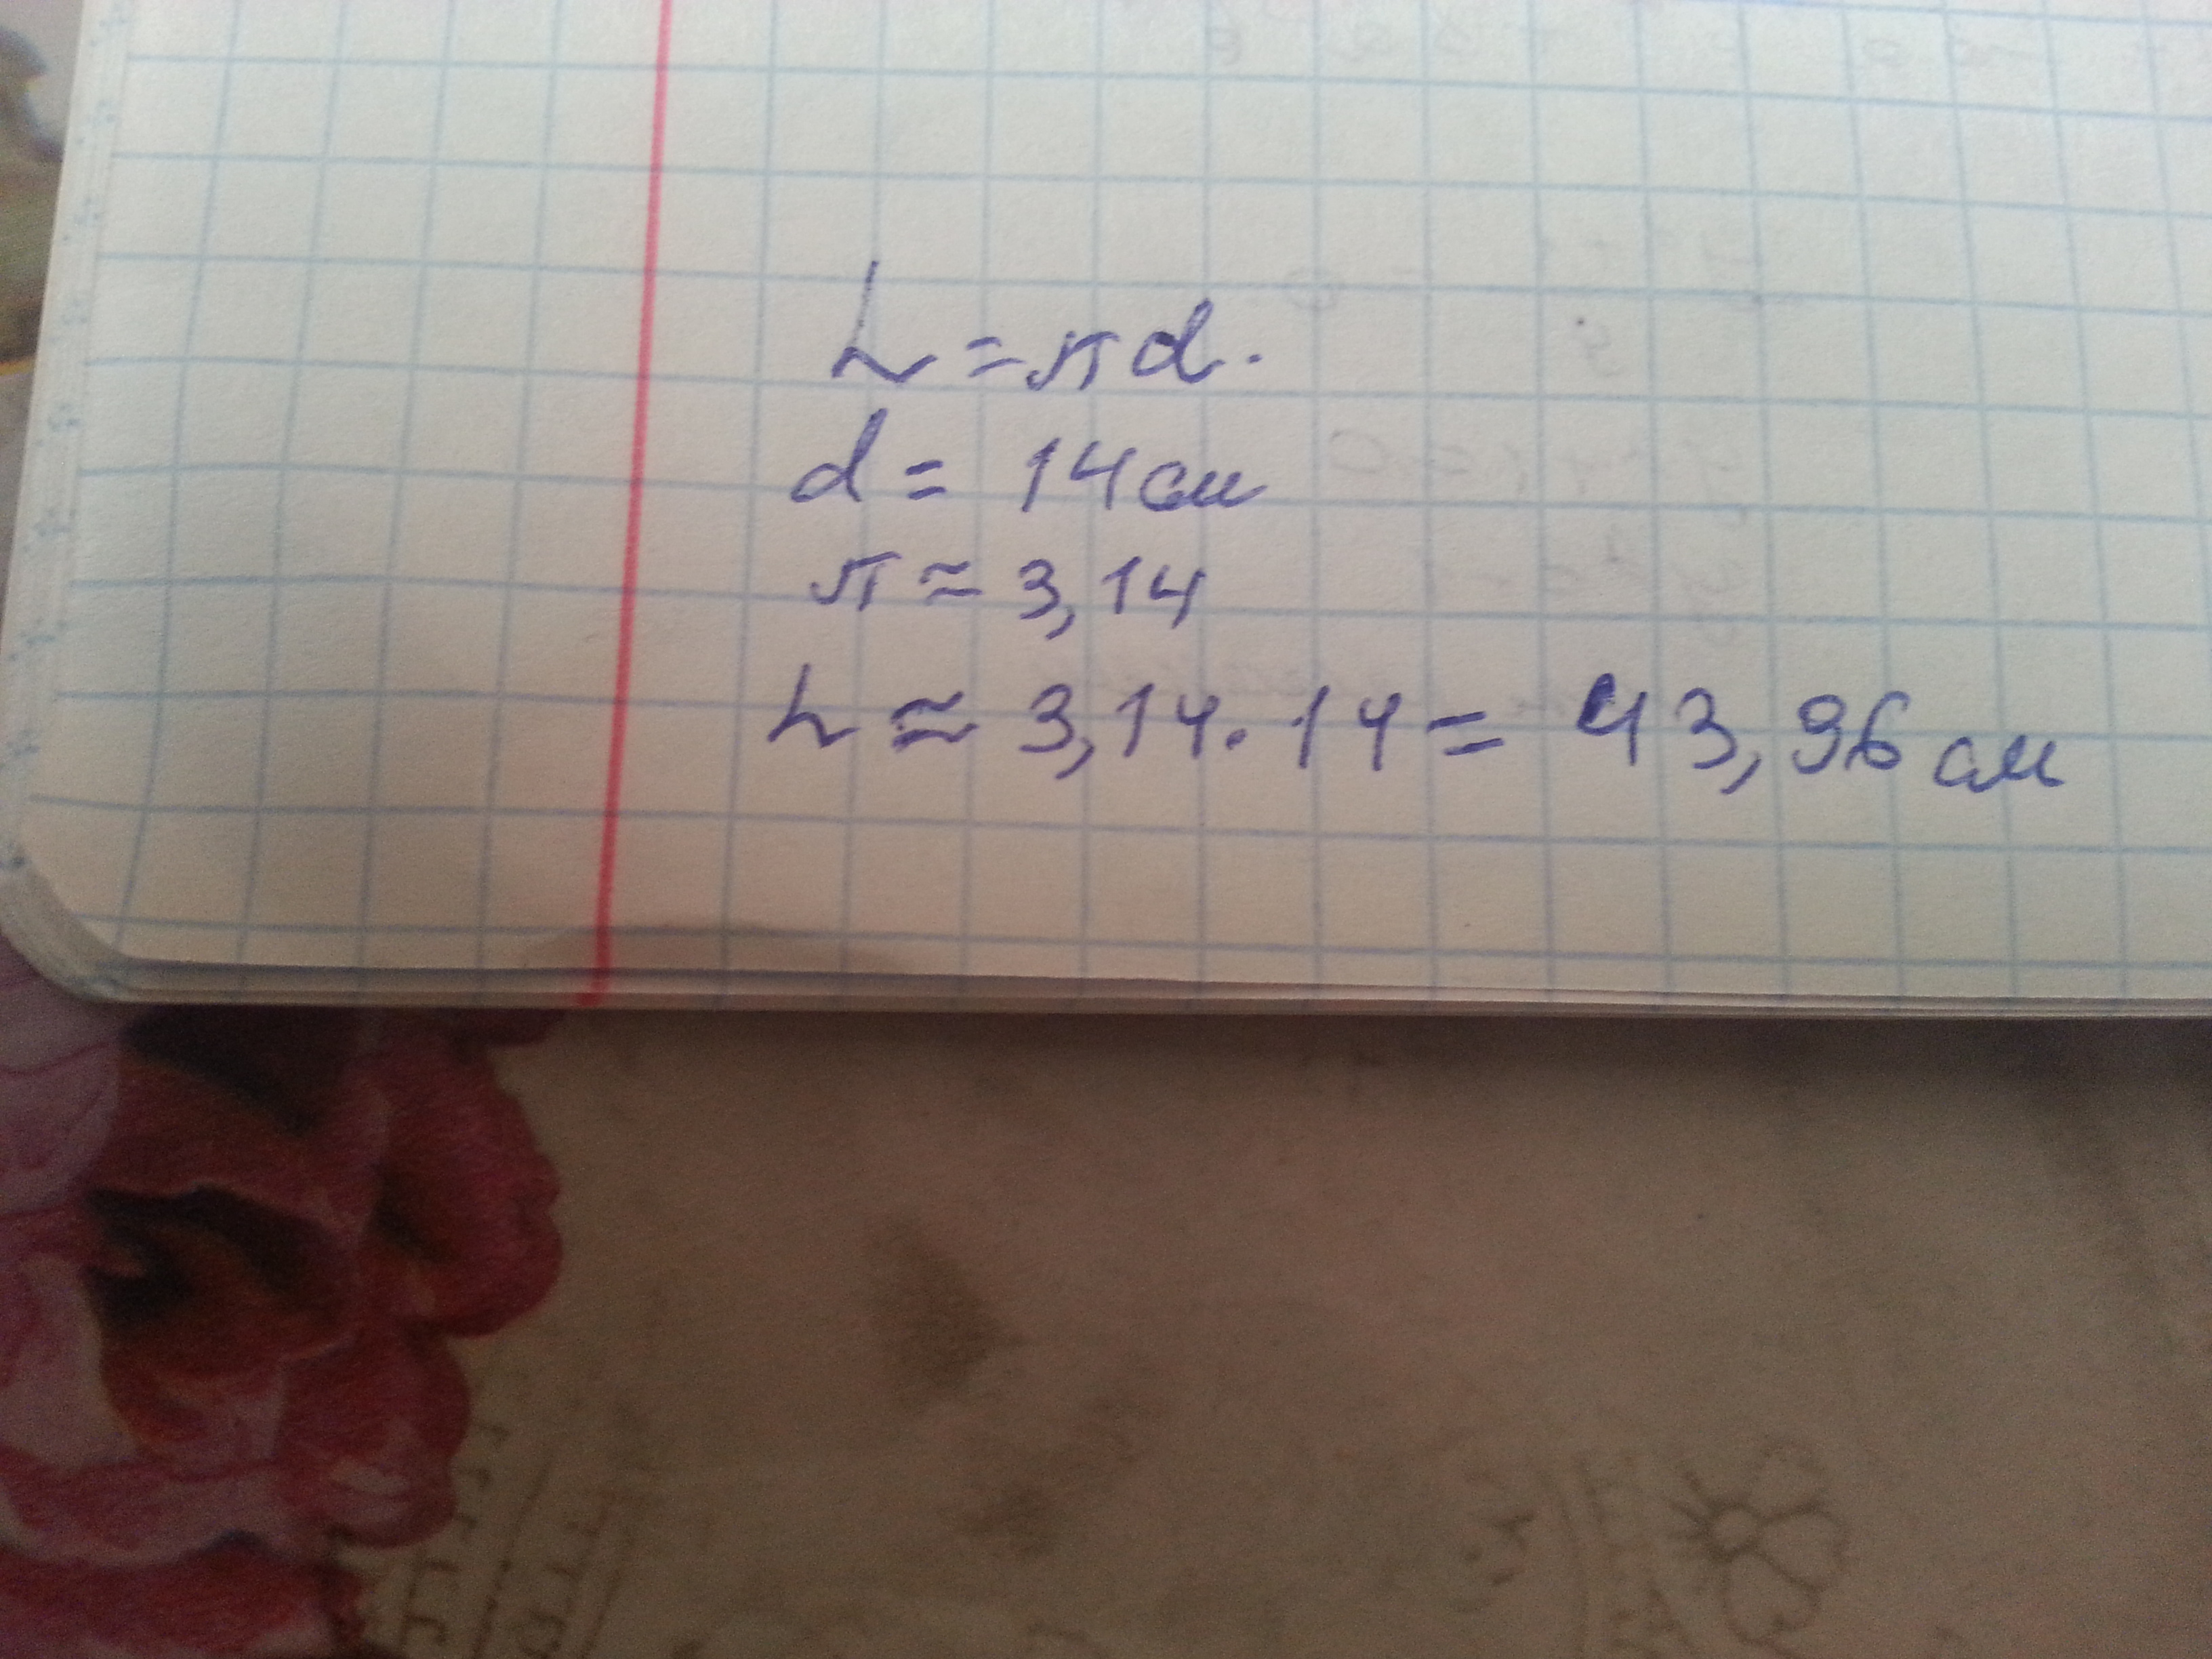 L = πd.
d = 14 см
π ≈ 3,14
L ≈ 3,14 · 14 = 43,96 см